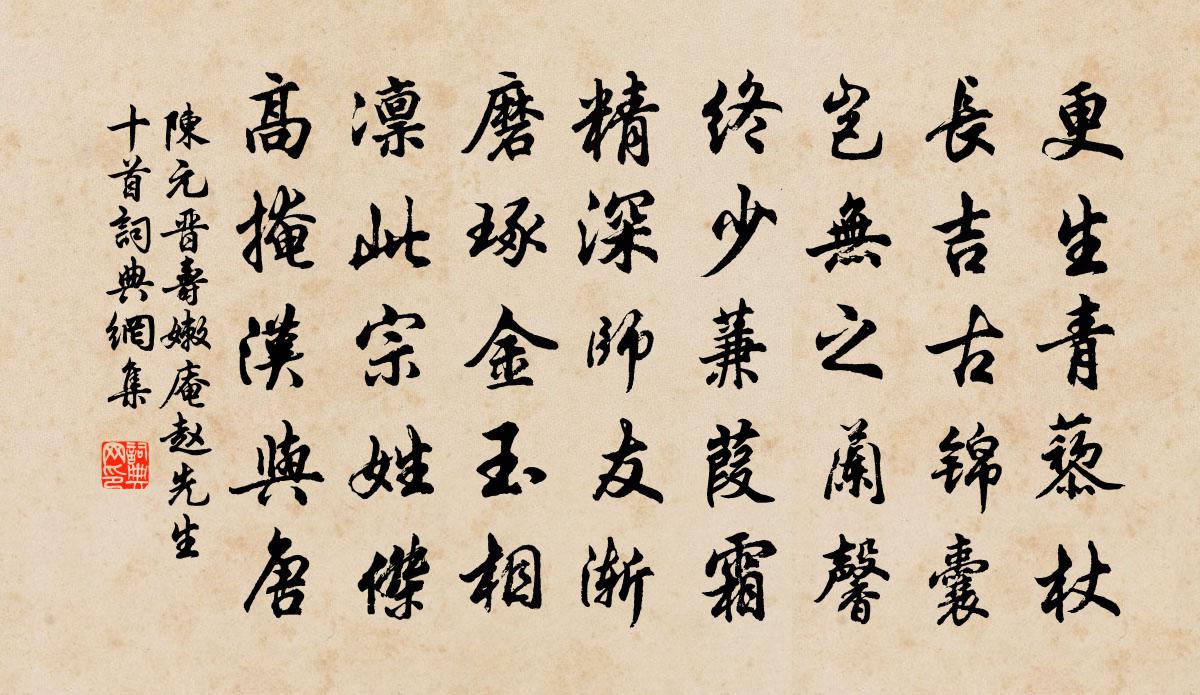 更生青藜杖
長吉古锦囊
岂無之蘭馨
终少蒹葭霜
精深師友渐
磨琢金玉相
凛此宗姓傑
高掩漢與唐
陳元晋壽嫩庵赵先生
十首詞典網集
詞典
网印